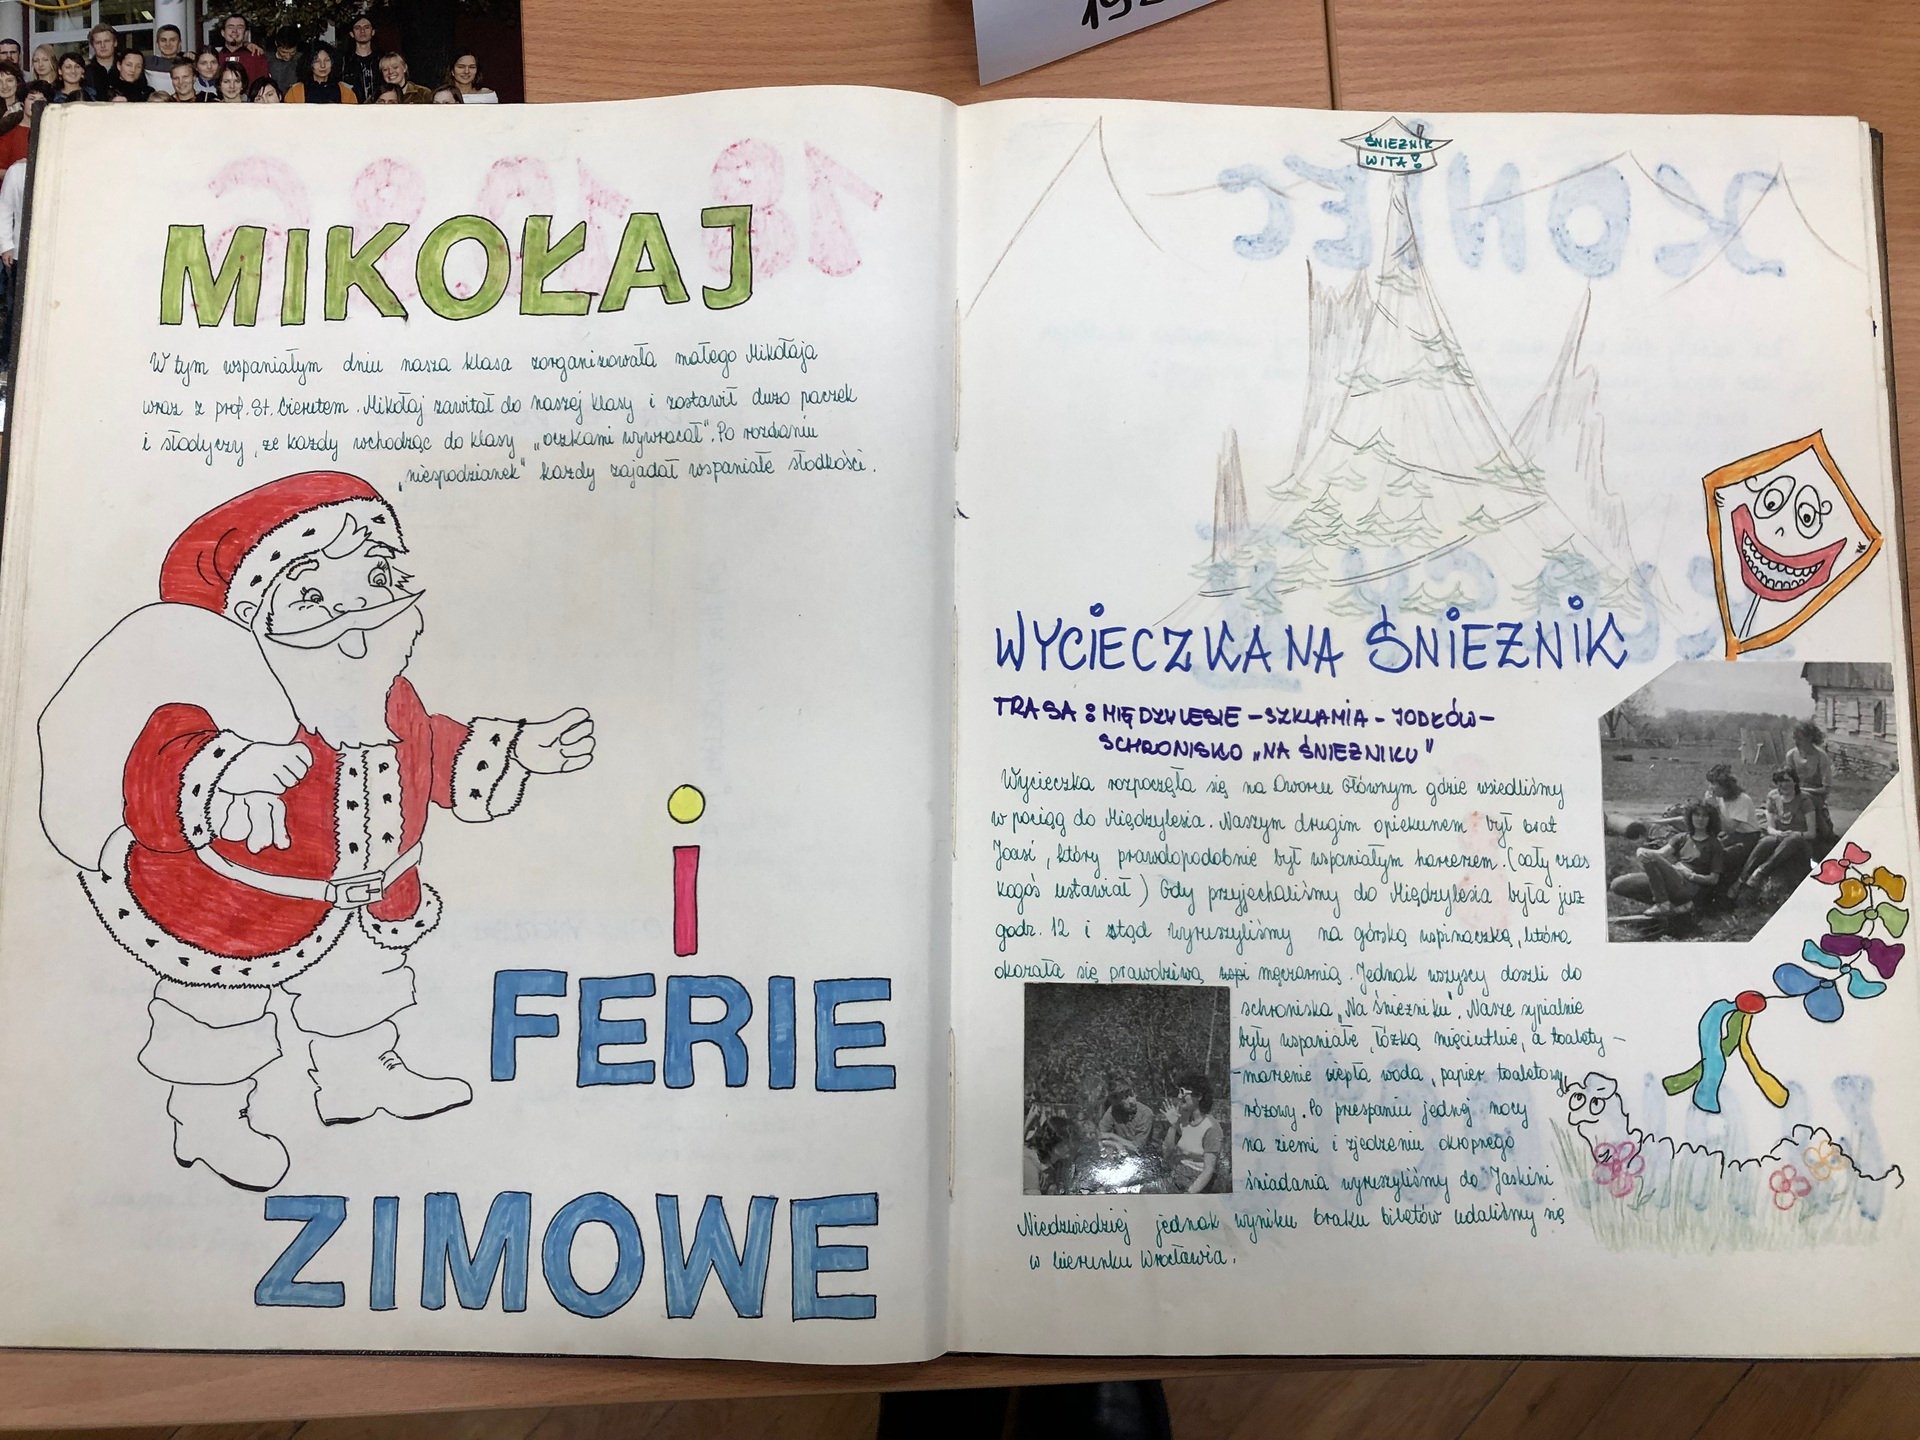 MIKOŁAJ
W tym wspaniałym dniu nasza klasa zorganizowała małego Mikołaja
wraz z prof. St. Cieretem. Mikołaj zawitał do naszej klasy i zostawił dużo paczek
i słodyczy, że każdy wchodząc do klasy „oczkami wywracał". Po rozdaniu
„niespodzianek" każdy zajadał wspaniałe słodkości.
i
FERIE
ZIMOWE
19
ŚNIEŻNIK
WITA!
WYCIECZKA NA ŚNIEŻNIK
TRASA: MIĘDZYLESIE - SZKLAMIA - JODŁÓW -
SCHRONISKO „NA ŚNIEŻNIKU"
Wycieczka rozpoczęła się na Dworcu Głównym gdzie wsiedliśmy
w pociąg do Międzylesia. Naszym drugim opiekunem był brat
Joasi, który prawdopodobnie był wspaniałym harcerzem. (cały czas
kogoś ustawiał) Gdy przyjechaliśmy do Międzylesia była już
godz. 12 i stąd wyruszyliśmy na górską wspinaczkę, która
okazała się prawdziwą męczarnią. Jednak wszyscy doszli do
schroniska „Na Śnieżniku". Nasze sypialnie
były wspaniałe, łóżka mięciutkie, a toalety -
- marzenie ciepła woda, papier toaletowy
różowy. Po przespaniu jednej nocy
na ziemi i zjedzeniu okropnego
śniadania wyruszyliśmy do Jaskini
Niedźwiedziej jednak wyniku braku biletów udaliśmy się
w kierunku Wrocławia.